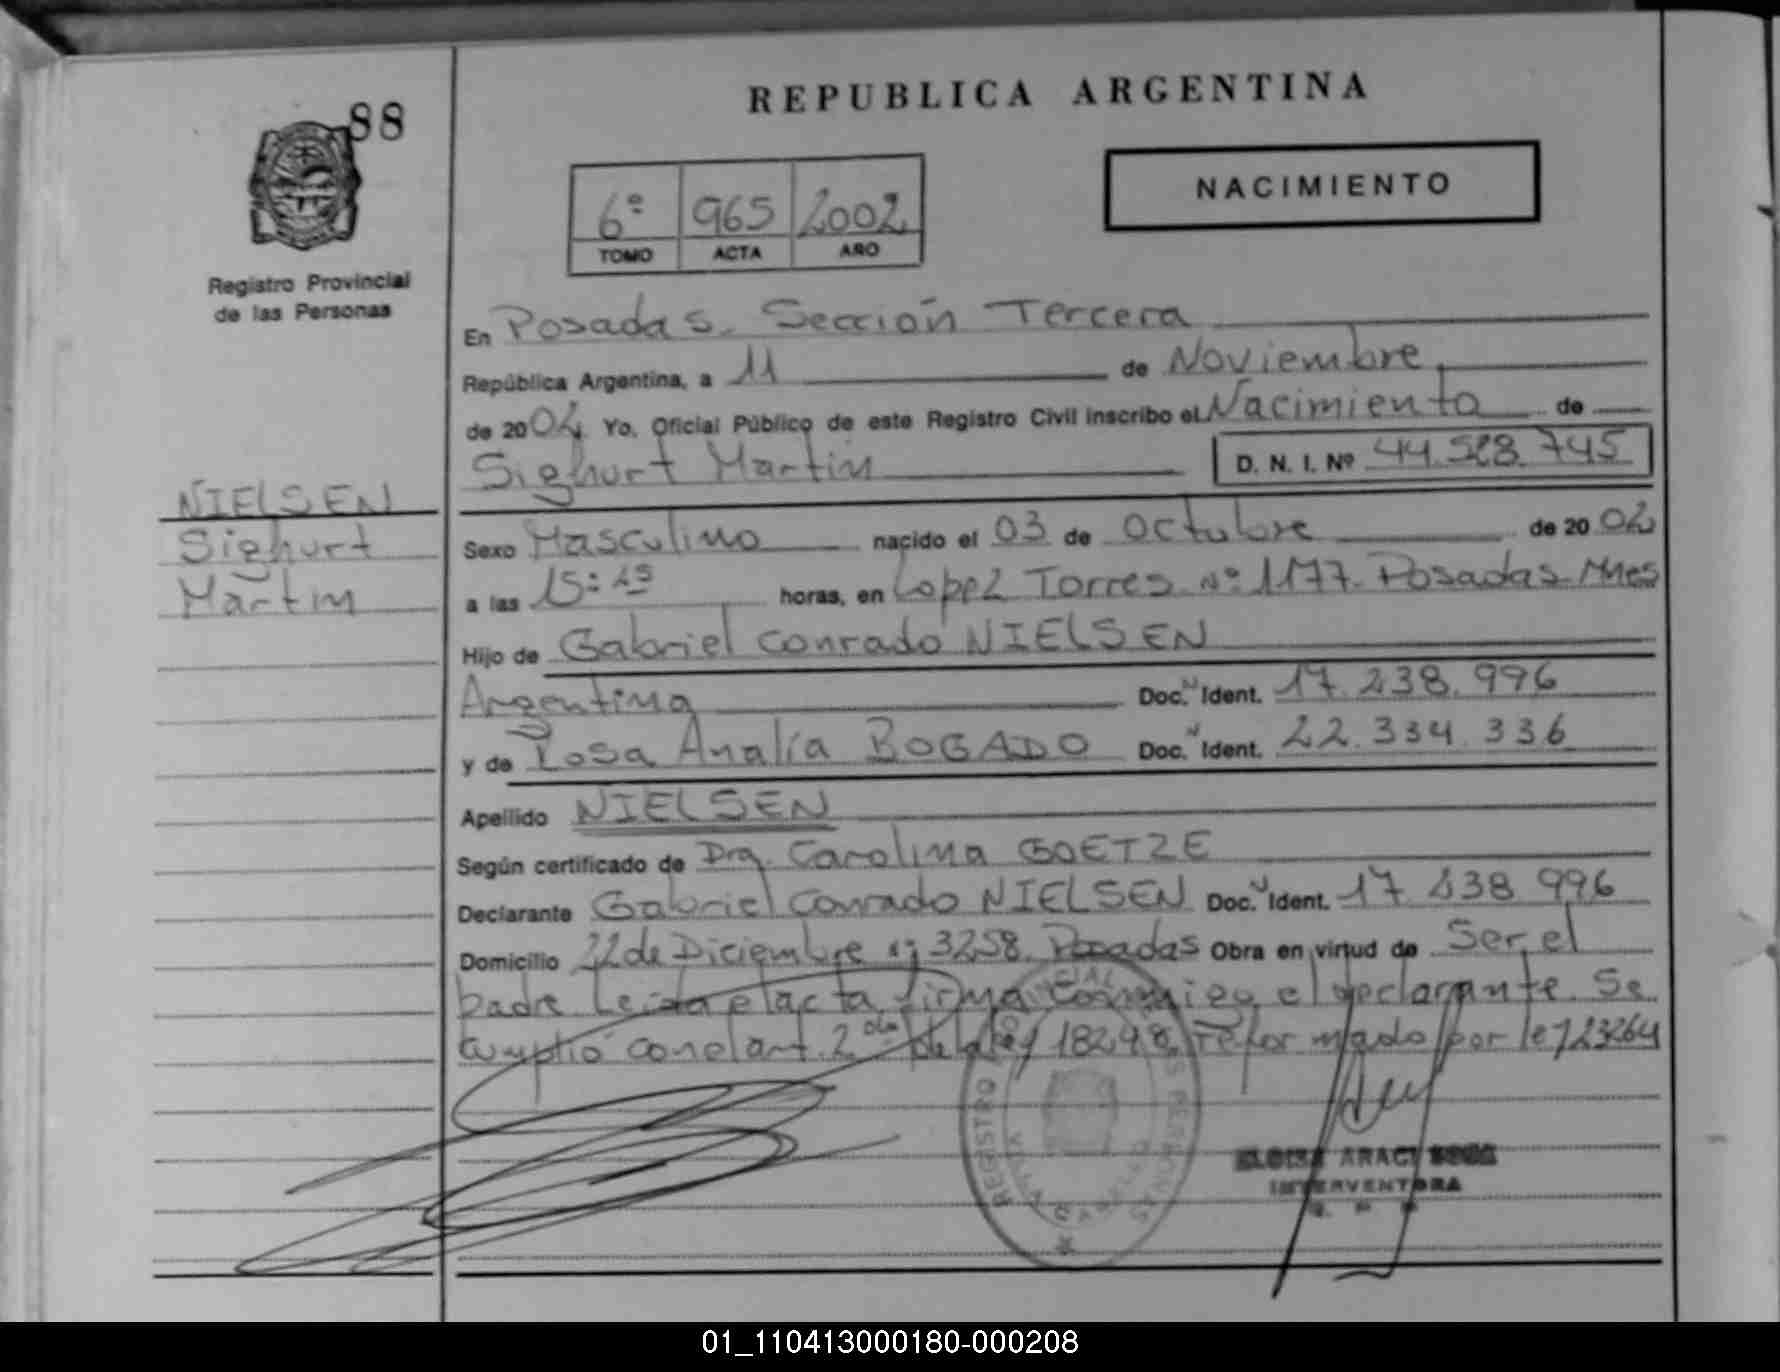 REPUBLICA ARGENTINA
88
NACIMIENTO
6º 965 2002
TOMO ACTA AÑO
Registro Provincial
de las Personas
En Posadas. Sección Tercera
República Argentina, a 11 de Noviembre
de 2004 Yo, Oficial Público de este Registro Civil inscribo el Nacimiento de
Sighurt Martin D. N. I. Nº 44.528.745
NIELSEN
Sighurt
Martin
Sexo Masculino nacido el 03 de Octubre de 2002
a las horas, en Lopez Torres Nº 1177. Posadas Mnes
Hijo de Gabriel Conrado NIELSEN
Argentina Doc. Ident. 17.238.996
y de Rosa Analía BOGADO Doc. Ident. 22.334.336
Apellido NIELSEN
Según certificado de Dra. Carolina GOETZE
Declarante Gabriel Conrado NIELSEN Doc. Ident. 17 238 996
Domicilio 22 de Diciembre Nº 3258. Posadas Obra en virtud de Ser el
padre. Leida el acta firma conmigo el declarante. Se
cumplió con el art. 2do de la ley 18248, reformado por ley 23264
REGISTRO PERSONAS
ARACI
INTERVENTORA
R. P. P.
01_110413000180-000208